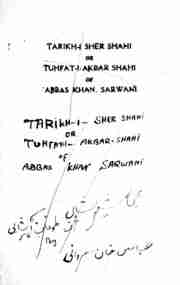 TARIKH-I SHER SHAHI
OR
TUHFAT-I AKBAR SHAHI
OF
'ABBAS KHAN SARWANI
TARIKH-I- SHER SHAHI
OR
TUHFATI- AKBAR-SHAHI
OF
ABBAS KHAN SARWANI
عباس خان سروانی